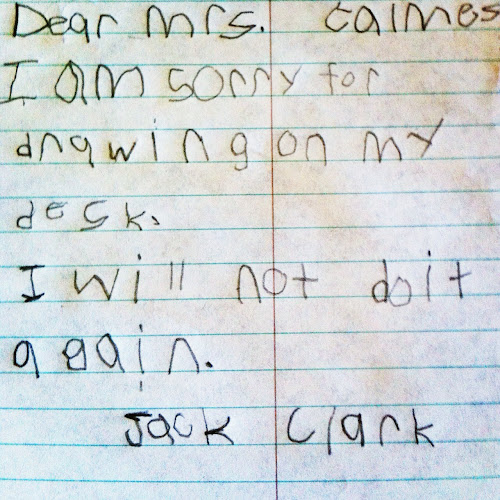 Dear Mrs. Calmes
I am sorry for
drawing on my
desk.
I will not do it
again.
Jack Clark